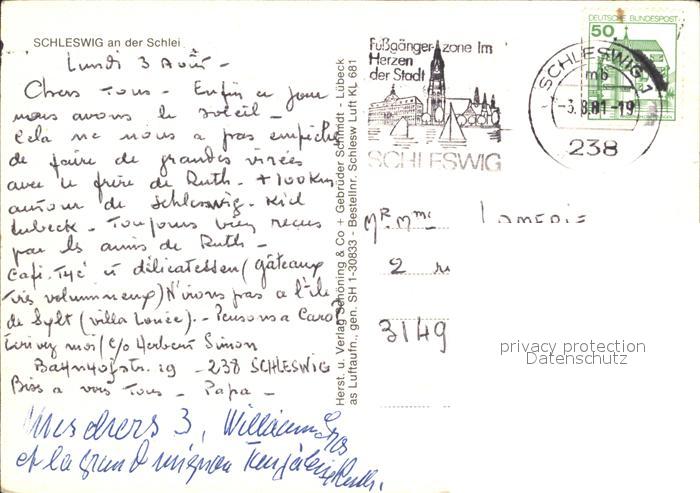 SCHLESWIG an der Schlei
Lundi 3 Août -
Chers Tous - Enfin ce jour
nous avons le soleil -
Cela ne nous a pas empêché
de faire de grandes virées
avec le frère de Ruth. + 100 Km
autour de Schleswig. Kiel
Lubeck - Toujours bien reçus
par les amis de Ruth -
Café. Thé délicatessen (gâteaux
très volumineux) N'irons pas a l'île
de Sylt (villa Louée). - Pensons a Carol
Ecrivez moi (c/o Herbert Simon
Bahnhofstr. 19 - 238 SCHLESWIG
Bises a vous Tous - Papa -
Mes chers 3, William
et la grand mignon
Herst. u. Verlag Schöning & Co + Gebrüder Schmidt - Lübeck
as Luftaufn., gen. SH 1-30833 - Bestellnr. Schlesw Luft KL 681
Fußgängerzone Im
Herzen
der Stadt
SCHLESWIG
DEUTSCHE BUNDESPOST
50
SCHLESWIG 1
mb
-3.8.81-19
238
Mr. Mme
2
3149
privacy protection
Datenschutz